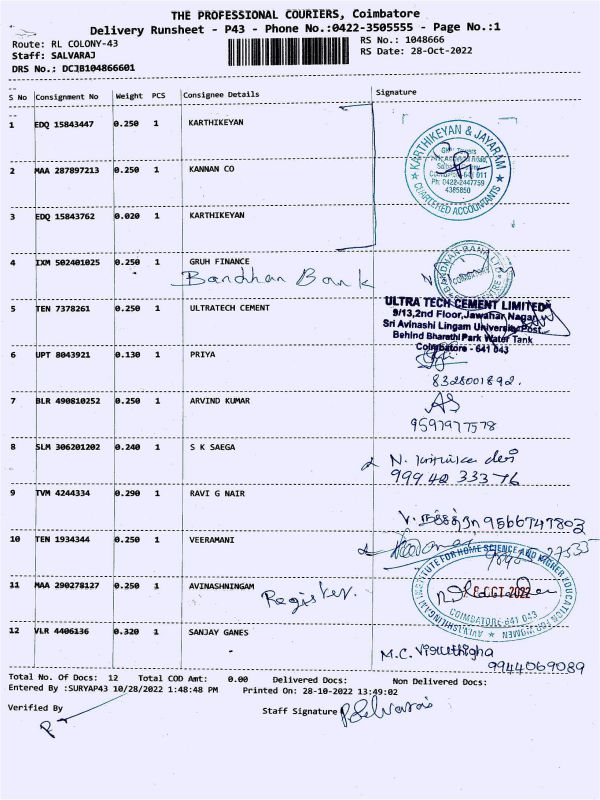 THE PROFESSIONAL COURIERS, Coimbatore
Delivery Runsheet - P43 - Phone No.:0422-3505555 - Page No.:1
Route: RL COLONY-43
RS No.: 1048666
Staff: SALVARAJ
RS Date: 28-Oct-2022
DRS No.: DCJB104866601
S No Consignment No Weight PCS Consignee Details Signature
1 EDQ 15843447 0.250 1 KARTHIKEYAN
KARTHIKEYAN & JAYARAM
641 011
Ph: 0422-2447759
4385850
CHARTERED ACCOUNTANTS
2 MAA 287897213 0.250 1 KANNAN CO
3 EDQ 15843762 0.020 1 KARTHIKEYAN
4 IXM 502401025 0.250 1 GRUH FINANCE
Bandhan Bank
COIMBATORE
5 TEN 7378261 0.250 1 ULTRATECH CEMENT
ULTRA TECH CEMENT LIMITED
9/13,2nd Floor,Jawahar Nagar,
Sri Avinashi Lingam University Post
Behind Bharathi Park Water Tank
Coimbatore - 641 043
6 UPT 8043921 0.130 1 PRIYA
8328001892.
7 BLR 490810252 0.250 1 ARVIND KUMAR
9597977578
8 SLM 306201202 0.240 1 S K SAEGA
N.
99942 33376
9 TVM 4244334 0.290 1 RAVI G NAIR
V. 9566747803
10 TEN 1934344 0.250 1 VEERAMANI
11 MAA 290278127 0.250 1 AVINASHNINGAM
Register.
AVINASHILINGAM INSTITUTE FOR HOME SCIENCE AND HIGHER EDUCATION FOR WOMEN
OCT 2022
COIMBATORE-641 043
12 VLR 4406136 0.320 1 SANJAY GANES
M.C.
9944069089
Total No. Of Docs: 12 Total COD Amt: 0.00 Delivered Docs: Non Delivered Docs:
Entered By :SURYAP43 10/28/2022 1:48:48 PM Printed On: 28-10-2022 13:49:02
Verified By
Staff Signature P.Selvaraj